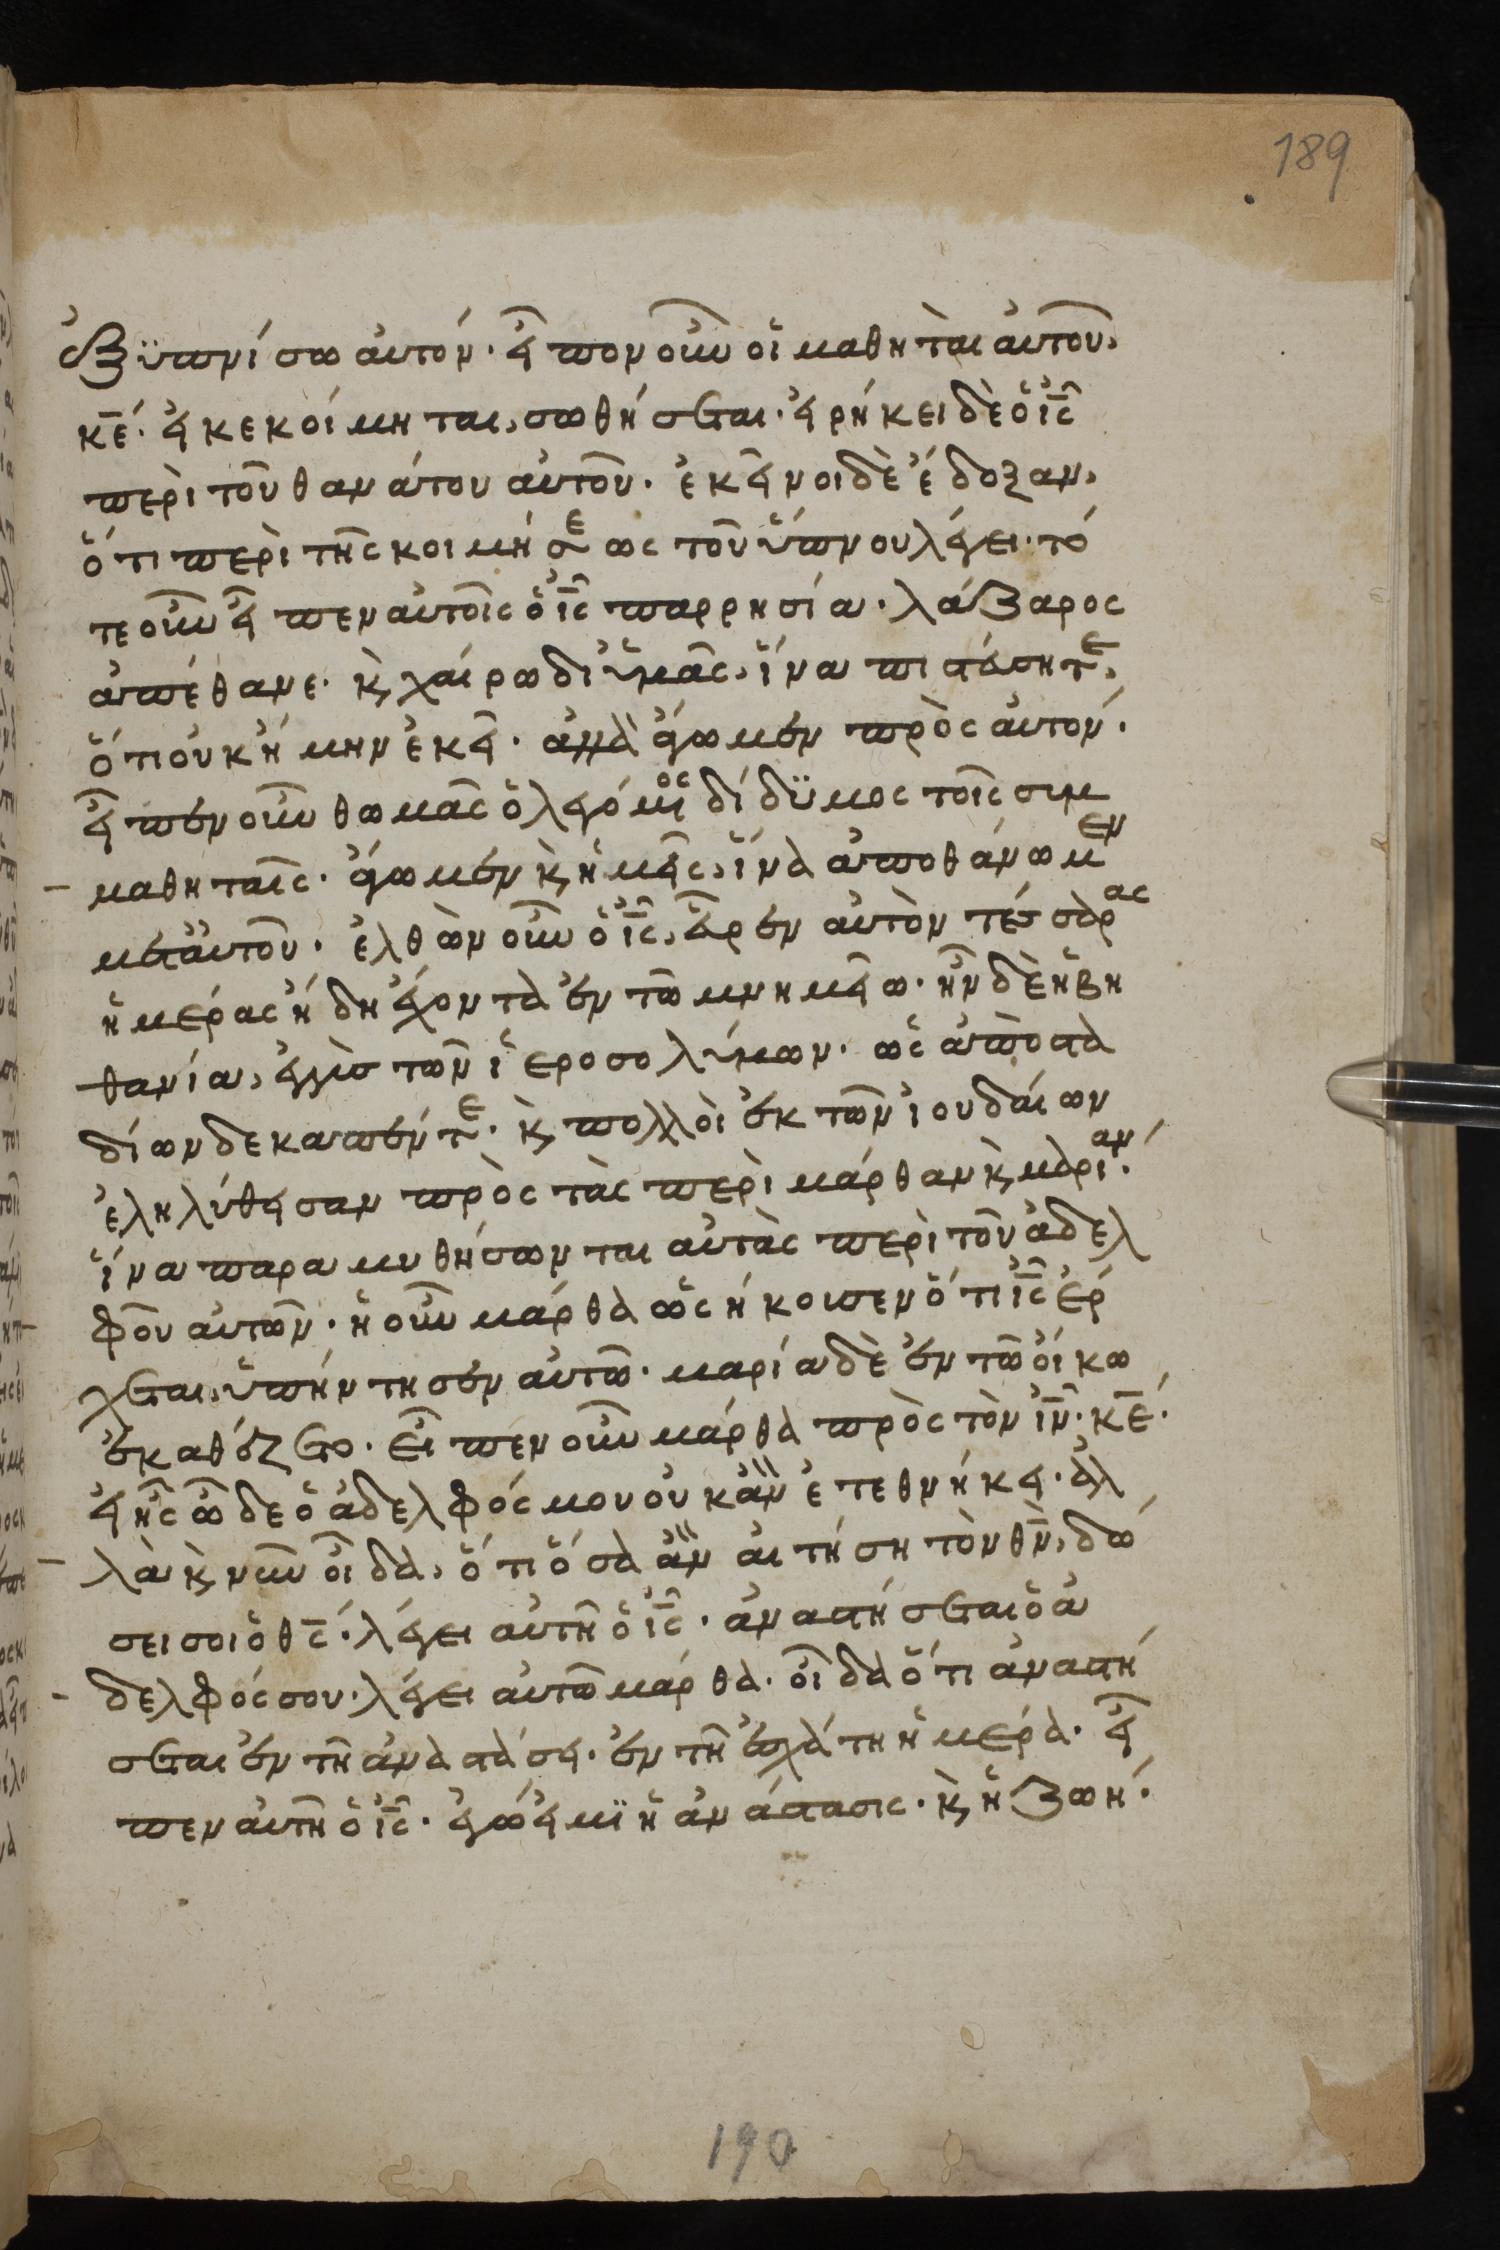 189
ἐξϋπνίσω αὐτόν· εἶπον οὖν οἱ μαθηταὶ αὐτοῦ,
κ̅ε̅· εἰ κεκοίμηται, σωθήσεται· εἰρήκει δὲ ὁ ι̅ς̅
περὶ τοῦ θανάτου αὐτοῦ· ἐκεῖνοι δὲ ἔδοξαν,
ὅτι περὶ τῆς κοιμήσεως τοῦ ὕπνου λέγει· τό
τε οὖν εἶπεν αὐτοῖς ὁ ι̅ς̅ παρρησία· λάζαρος
ἀπέθανε· κ̀ χαίρω δι ὑμᾶς, ἵνα πιστεύσητε,
ὅτι οὐκ ἤμην ἐκεῖ· ἀλλὰ ἄγωμεν πρὸς αὐτόν·
εἶπεν οὖν θωμᾶς ὁ λεγόμενος δίδϋμος τοῖς συμ
μαθηταῖς· ἄγωμεν κ̀ ἡμεῖς, ἵνα ἀποθάνωμεν
μετ αὐτοῦ· ἐλθὼν οὖν ὁ ι̅ς̅, εὗρεν αὐτὸν τέσσαρας
ἡμέρας ἤδη ἔχοντα ἐν τῶ μνημείω· ἦν δὲ ἡ βη
θανία, ἐγγὺς τῶν ἱεροσολύμων· ὡς ἀπὸ στα
δίων δεκαπέντε· κ̀ πολλοὶ ἐκ τῶν ἰουδαίων
ἐληλύθεισαν πρὸς τὰς περὶ μάρθαν κ̀ μαρίαν·
ἵνα παραμυθήσωνται αὐτὰς περὶ τοῦ ἀδελ
φοῦ αὐτῶν· ἡ οὖν μάρθα ὡς ἤκουσεν ὅτι ι̅ς̅ ἔρ
χεται, ὑπήντησεν αὐτῶ· μαρία δὲ ἐν τῶ οἴκω
ἐκαθέζετο· εἶπεν οὖν μάρθα πρὸς τὸν ι̅ν̅· κ̅ε̅·
εἰ ἦς ὧδε ὁ ἀδελφός μου οὐκ ἂν ἐτεθνήκει· ἀλ
λὰ κ̀ νῦν οἶδα, ὅτι ὅσα ἂν αἰτήση τὸν θ̅ν̅, δώ
σει σοι ὁ θ̅ς̅· λέγει αὐτῆ ὁ ι̅ς̅· ἀναστήσεται ὁ ἀ
δελφός σου· λέγει αὐτῶ μάρθα· οἶδα ὅτι ἀναστή
σεται ἐν τῆ ἀναστάσει· ἐν τῆ ἐσχάτη ἡμέρα· εἶ
πεν αὐτῆ ὁ ι̅ς̅· ἐγώ εἰμϊ ἡ ἀνάστασις· κ̀ ἡ ζωή·
190